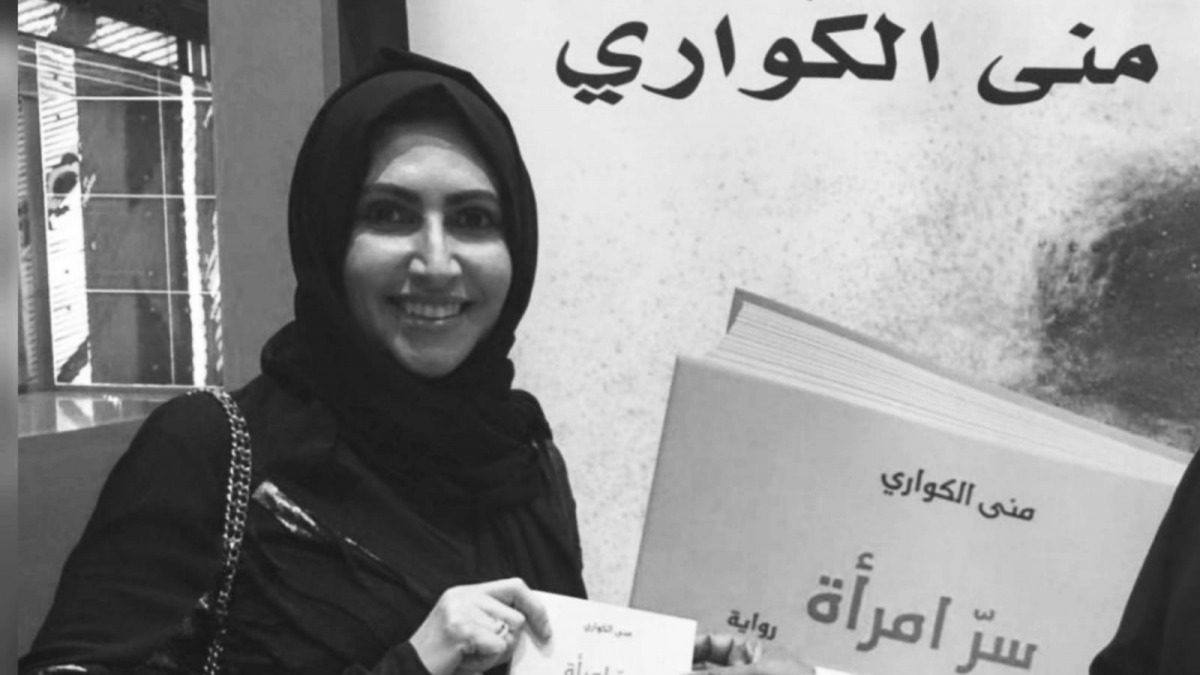 منى الكواري
منى الكواري
سرّ امرأة
رواية
منى الكواري
سرّ امرأة